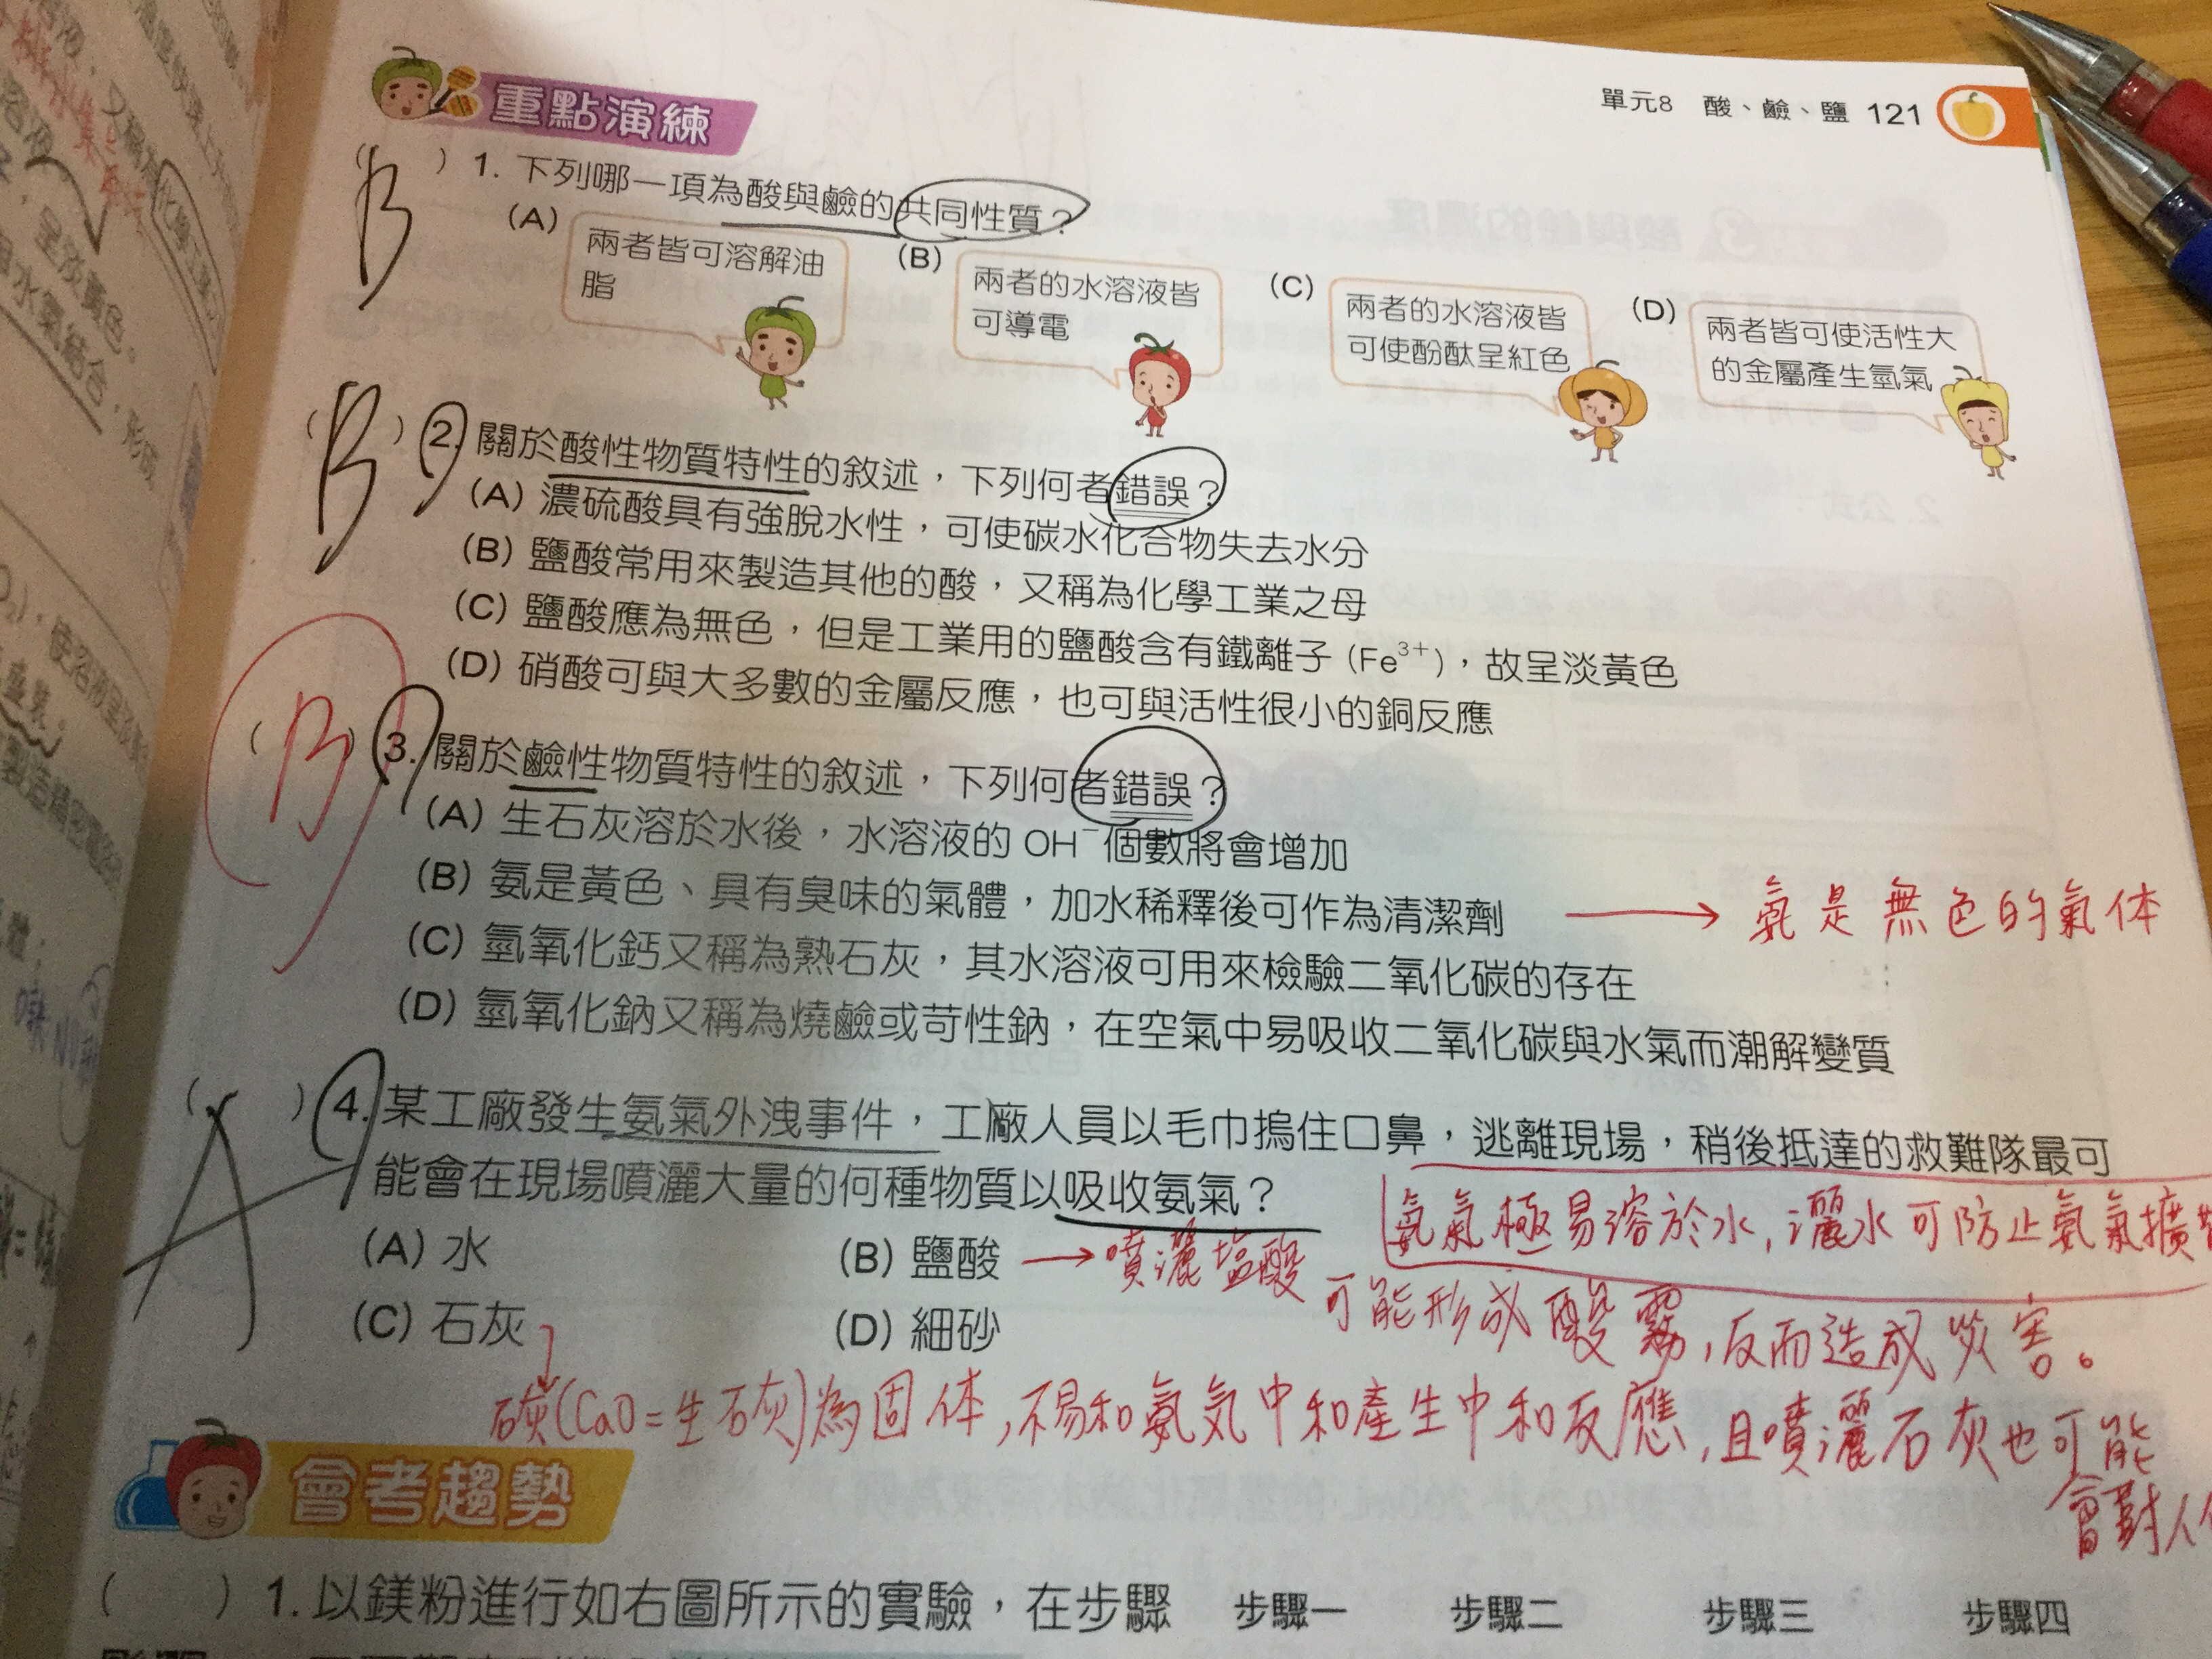 單元8 酸、鹼、鹽 121
重點演練
(B) 1. 下列哪一項為酸與鹼的共同性質?
(A) 兩者皆可溶解油
脂
(B) 兩者的水溶液皆
可導電
(C) 兩者的水溶液皆
可使酚酞呈紅色
(D) 兩者皆可使活性大
的金屬產生氫氣
(B) 2. 關於酸性物質特性的敘述,下列何者錯誤?
(A) 濃硫酸具有強脫水性,可使碳水化合物失去水分
(B) 鹽酸常用來製造其他的酸,又稱為化學工業之母
(C) 鹽酸應為無色,但是工業用的鹽酸含有鐵離子 (Fe³⁺),故呈淡黃色
(D) 硝酸可與大多數的金屬反應,也可與活性很小的銅反應
(B) 3. 關於鹼性物質特性的敘述,下列何者錯誤?
(A) 生石灰溶於水後,水溶液的 OH⁻ 個數將會增加
(B) 氨是黃色、具有臭味的氣體,加水稀釋後可作為清潔劑 → 氨是無色的氣体
(C) 氫氧化鈣又稱為熟石灰,其水溶液可用來檢驗二氧化碳的存在
(D) 氫氧化鈉又稱為燒鹼或苛性鈉,在空氣中易吸收二氧化碳與水氣而潮解變質
(A) 4. 某工廠發生氨氣外洩事件,工廠人員以毛巾摀住口鼻,逃離現場,稍後抵達的救難隊最可
能會在現場噴灑大量的何種物質以吸收氨氣?
氨氣極易溶於水,灑水可防止氨氣擴
(A) 水
(B) 鹽酸 → 噴灑塩酸
可能形成酸霧,反而造成災害。
(C) 石灰
(D) 細砂
石灰(CaO=生石灰)為固体,不易和氨気中和產生中和反應,且噴灑石灰也可能
會對人
會考趨勢
( ) 1. 以鎂粉進行如右圖所示的實驗,在步驟
步驟一 步驟二 步驟三 步驟四